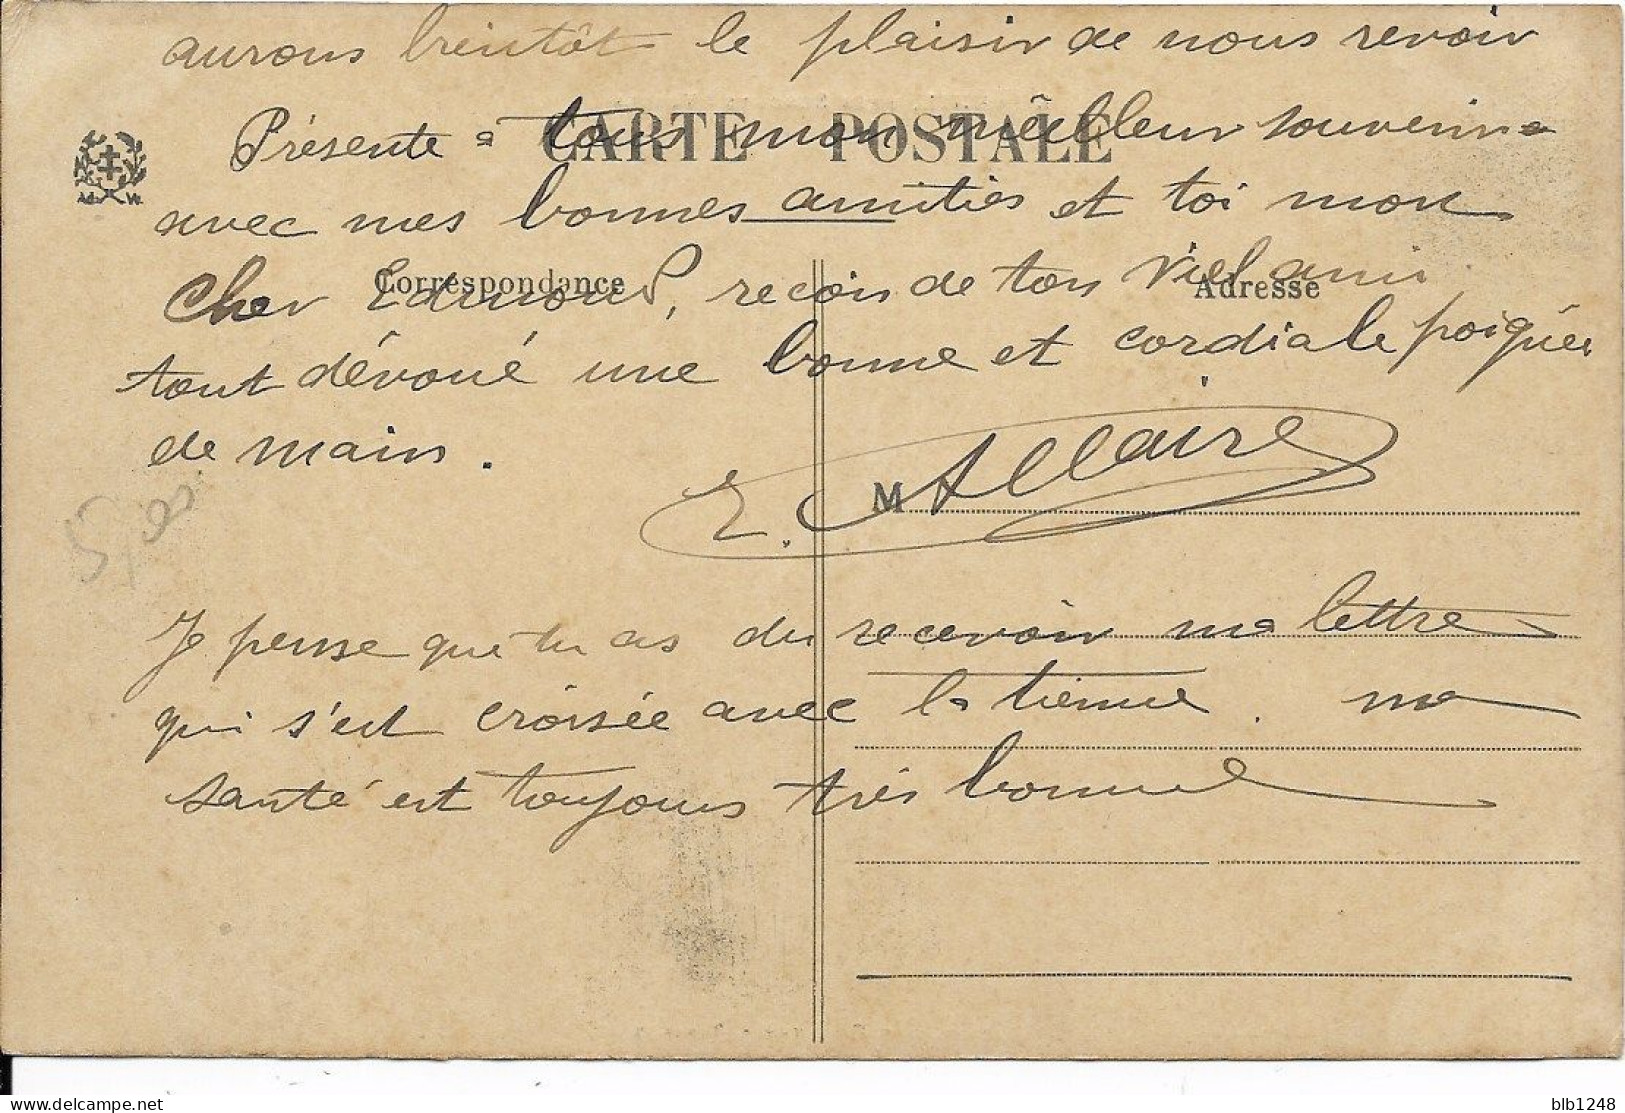 aurons bientôt le plaisir de nous revoir
CARTE POSTALE
Présente à tous mon meilleur souvenir
avec mes bonnes amitiés et toi mon
Correspondance
Adresse
Cher Edmond, reçois de ton vieil ami
tout dévoué une bonne et cordiale poignée
de main.
M
E. Allaire
5,00
Je pense que tu as du recevoir ma lettre
qui s'est croisée avec la tienne. ma
santé est toujours très bonne
blb1248